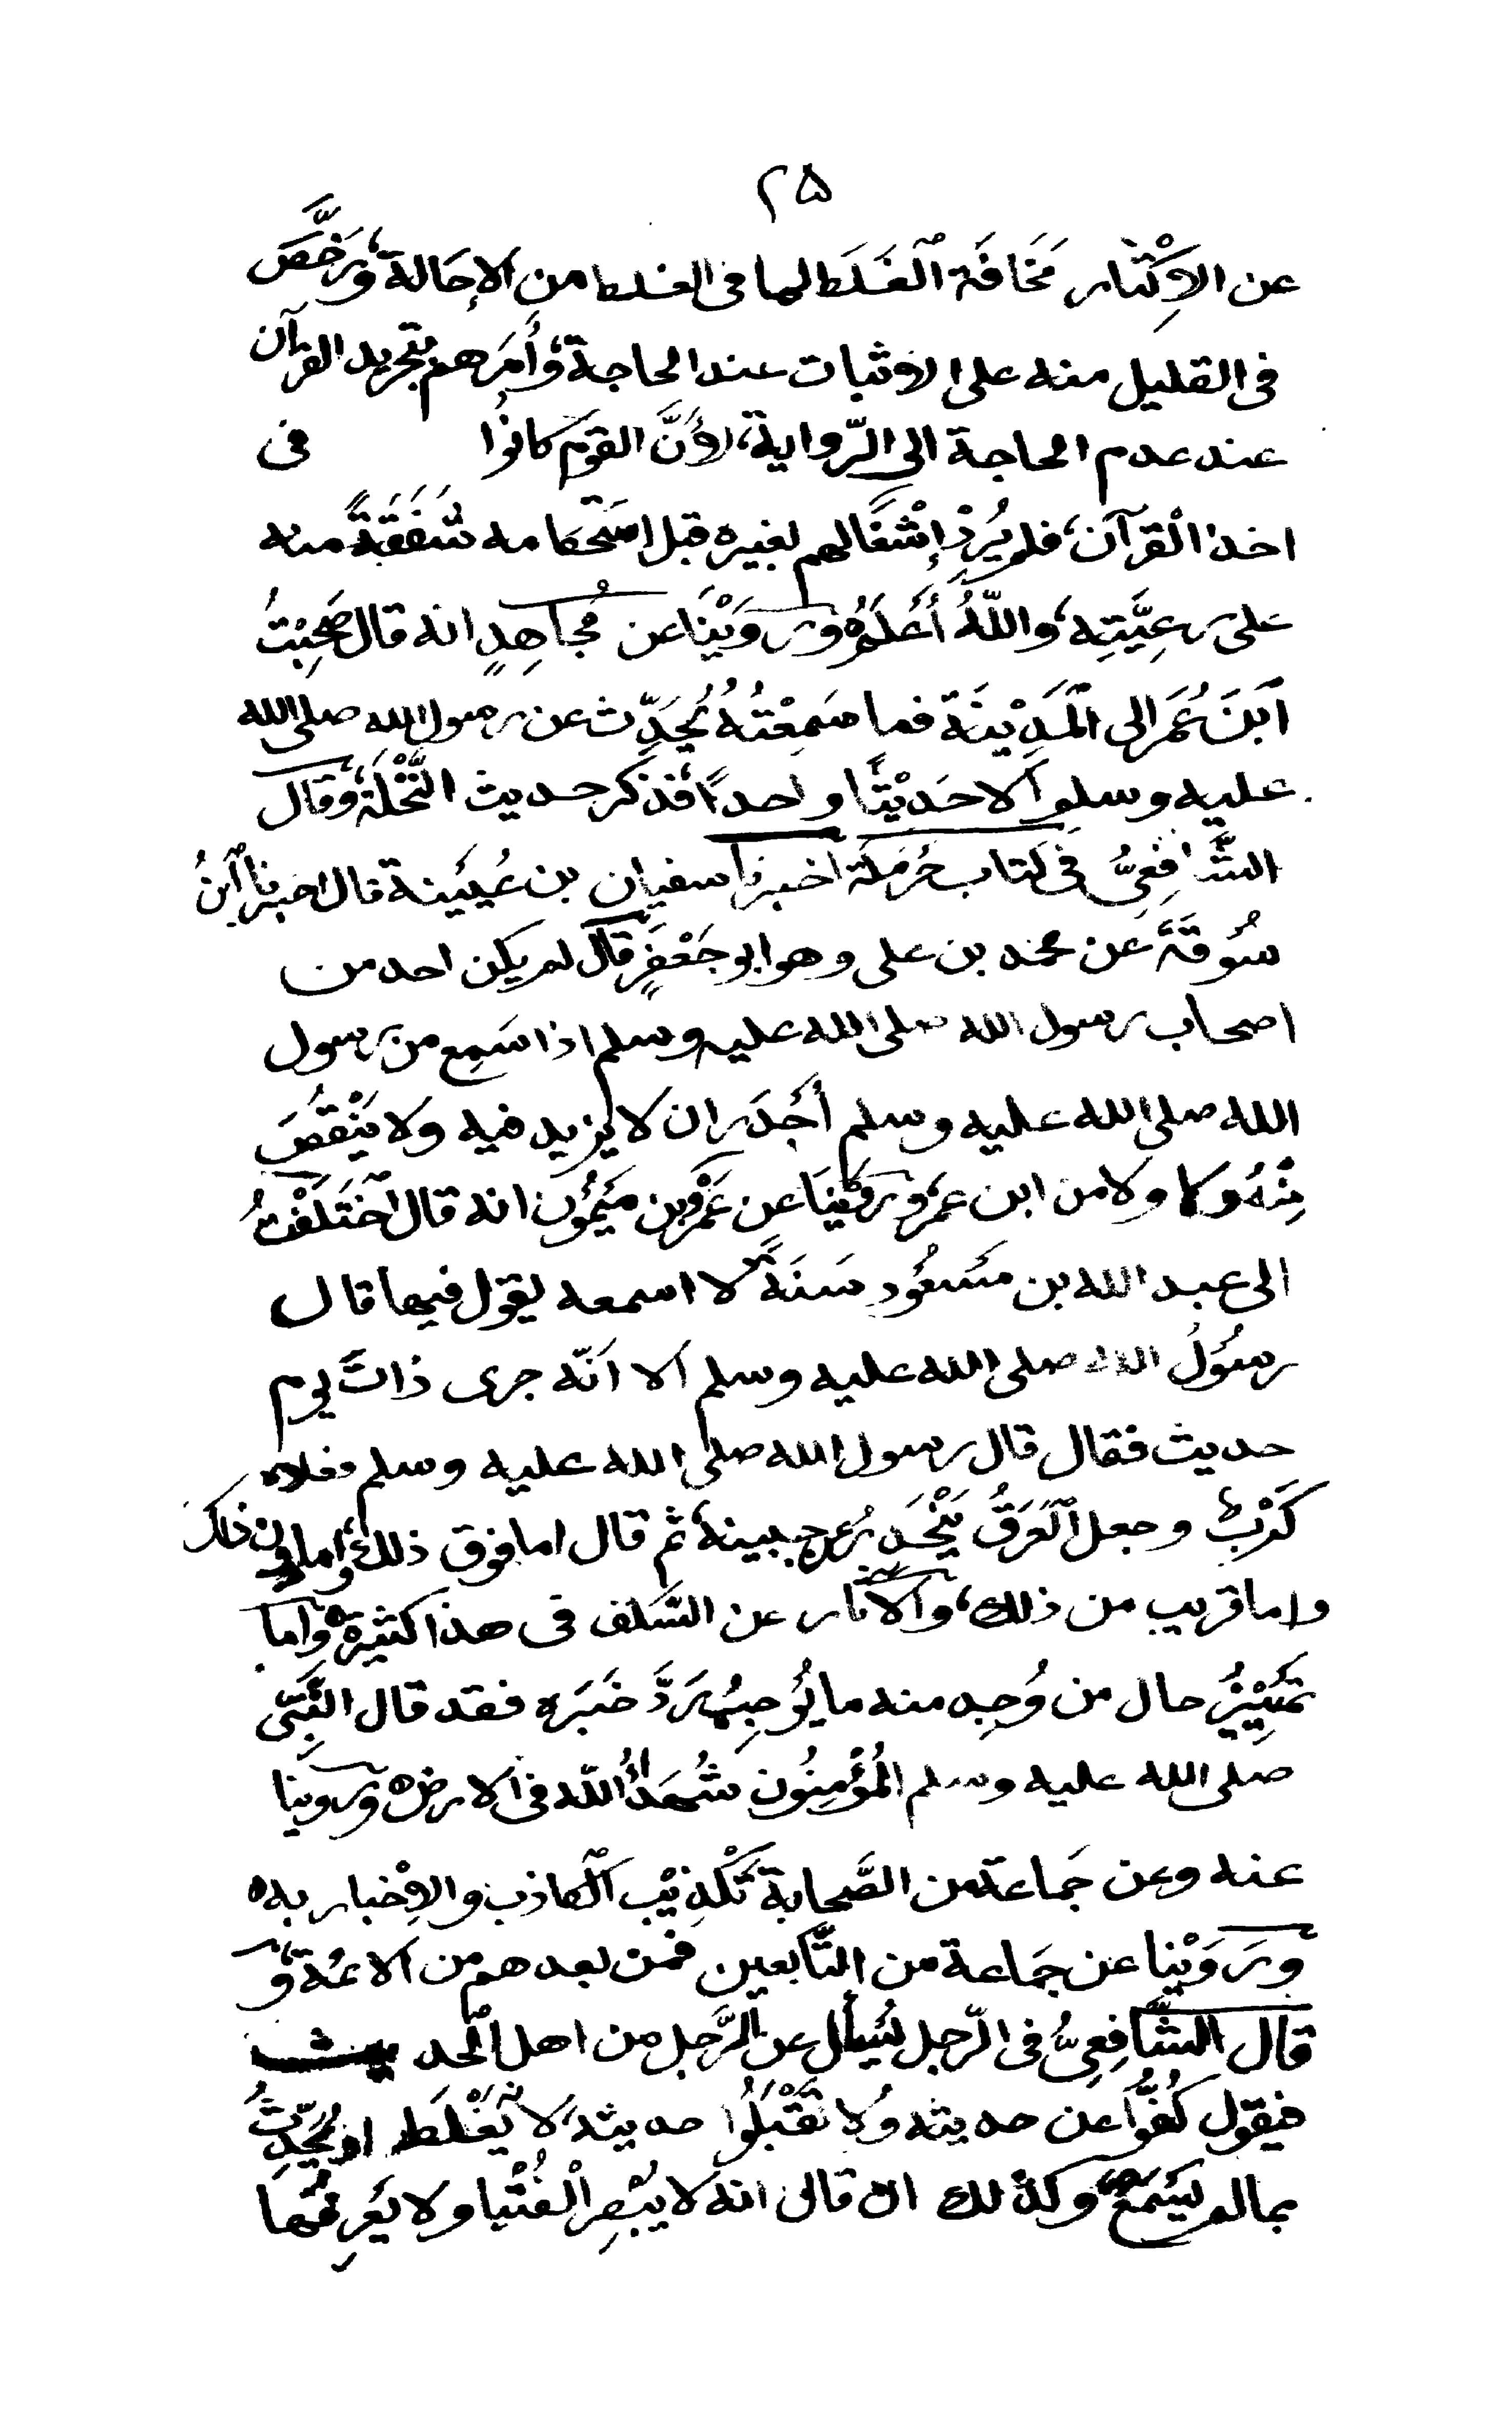 ٢٥
عن الإِكْثار مَخَافَة ٱلغَلَط لما فى الغلط من الإحَالة، وَرَخَّصَ
فى القليل منه على الإثبات عند الحاجة، وأَمَرهم بتجريد القرآن
عند عدم الحاجة الى الرّواية، لأَنَّ القوم كانوُا فى
اخذ القرآن، فلم يُرِدْ إشْغَالهم لغيره قبل استحكامه شَفَقَةً منه
على رعِيَّتِه، واللّٰهُ أَعْلَمُ، ورَوَيْنَا عن مُجاهِدٍ انه قال صَحِبْتُ
ٱبْنَ عُمَر الى ٱلمَدِيْنَة فما سَمِعْتُهُ يُحَدِّث عن رسول الله صلى الله
عليه وسلم الا حَدِيْثًا واحداً، فذكر حديث النَّخْلَة، وقال
الشَّافِعِىُّ فى كتاب حَرْمَلَة أخبرنا سفيان بن عُيَيْنة قال اخبرنا ٱبْنُ
سُوقَةَ عن محمد بن على وهو ابو جَعْفَرٍ قال لم يكن احد من
اصحاب رسول الله صلى الله عليه وسلم اذا سَمِع من رسول
الله صلى الله عليه وسلم أَجْدَر ان لا يزيد فيه ولا يَنْقُصَ
مِنْهُ ولا ولا من ابن عمر، ورَوَيْنَا عن عَمْرو بن مَيْمُون انه قال ٱخْتَلَفْتُ
الى عبد الله بن مَسْعُودٍ سَنَةً لا اسمعه يقول فيها قال
رسُوُلُ الله صلى الله عليه وسلم الا انّه جرى ذاتَ يوم
حديث فقال قال رسول الله صلى الله عليه وسلم فعلاه
كَرْبٌ وجعل ٱلعَرَقُ يَنْحَدِرُ عن جبينه، ثم قال اما فوق ذلك، واما دون ذلك
واما قريب من ذلك، والآثار عن السَّلف فى هذا كثيرة، واما
تَمْيِيْزُ حال من وُجِد منه ما يُوْجِبُ رَدَّ خَبَرَهِ فقد قال النَّبِىّ
صلى الله عليه وسلم المُؤْمِنُون شُهَدَاءُ اللّٰه فى الارض، وروينا
عنه وعن جَماعة من الصَّحابة تَكْذِيْب ٱلكاذب والإخبار به
ورَوَيْنا عن جَماعة من التَّابعين فمن بعدهم من الائمة، و
قال الشَّافِعِىُّ فى الرّجل يُسْأَل عن الرَّجل من اهل الحديث
فيقول كُفُّوا عن حديثه ولا تَقْبَلُوا حديثه لانه يَغْلَط او يُحَدِّثُ
بما لم يَسْمَعْ، وكذلك ان قال انه لا يُبْصِر الفُتْيا ولا يَعْرِفُها